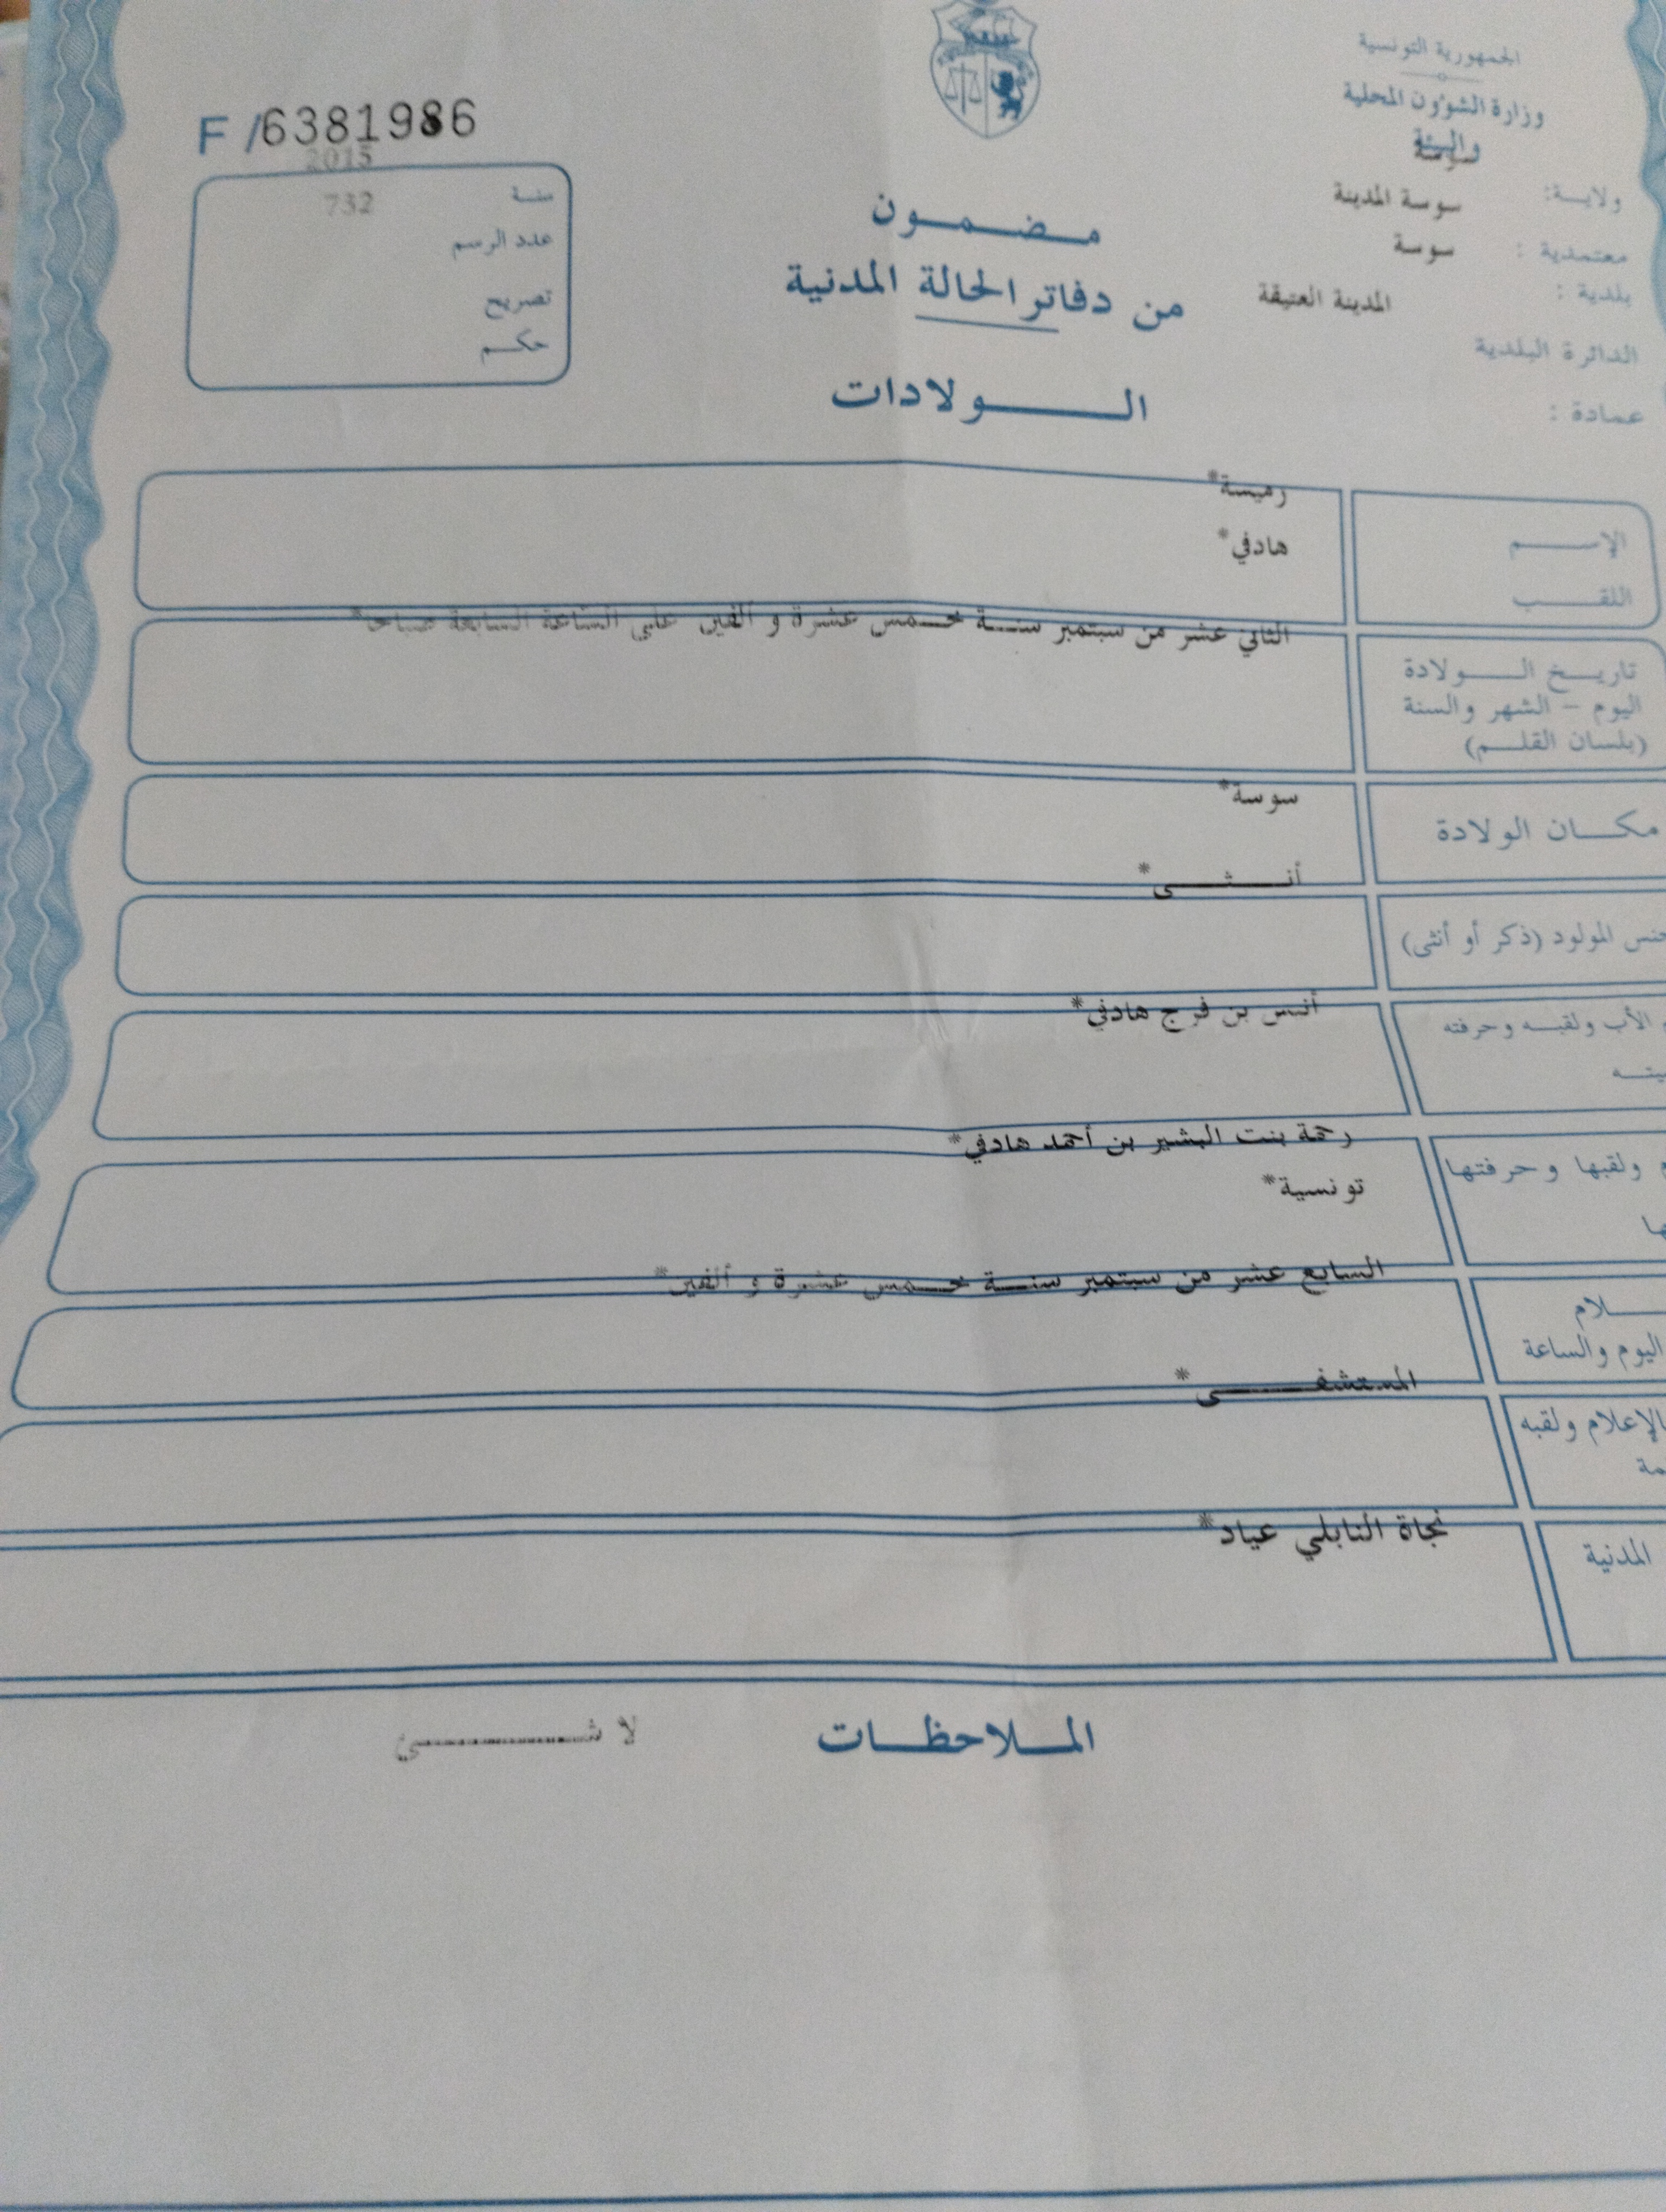 الجمهورية التونسية
وزارة الشؤون المحلية
والبيئة
F /6381986
ولاية: سوسة
معتمدية : سوسة المدينة
بلدية : سوسة
الدائرة البلدية المدينة العتيقة
عمادة :
2015
سنة 732
عدد الرسم
تصريح
حكم
مضمون
من دفاتر الحالة المدنية
الولادات
رميسة*
الإسم
هادفي*
اللقب
الثاني عشر من سبتمبر سنة خمس عشرة و ألفين على الساعة السابعة صباحا*
تاريخ الولادة
اليوم – الشهر والسنة
(بلسان القلم)
سوسة*
مكان الولادة
أنثى*
جنس المولود (ذكر أو أنثى)
أنس بن فرج هادفي*
الأب ولقبه وحرفته
رحمة بنت البشير بن أحمد هادفي*
ولقبها وحرفتها
تونسية*
السابع عشر من سبتمبر سنة خمس عشرة و ألفين*
اليوم والساعة
المستشفى*
بالإعلام ولقبه
نجاة النابلي عياد*
المدنية
الملاحظات لا شيئ